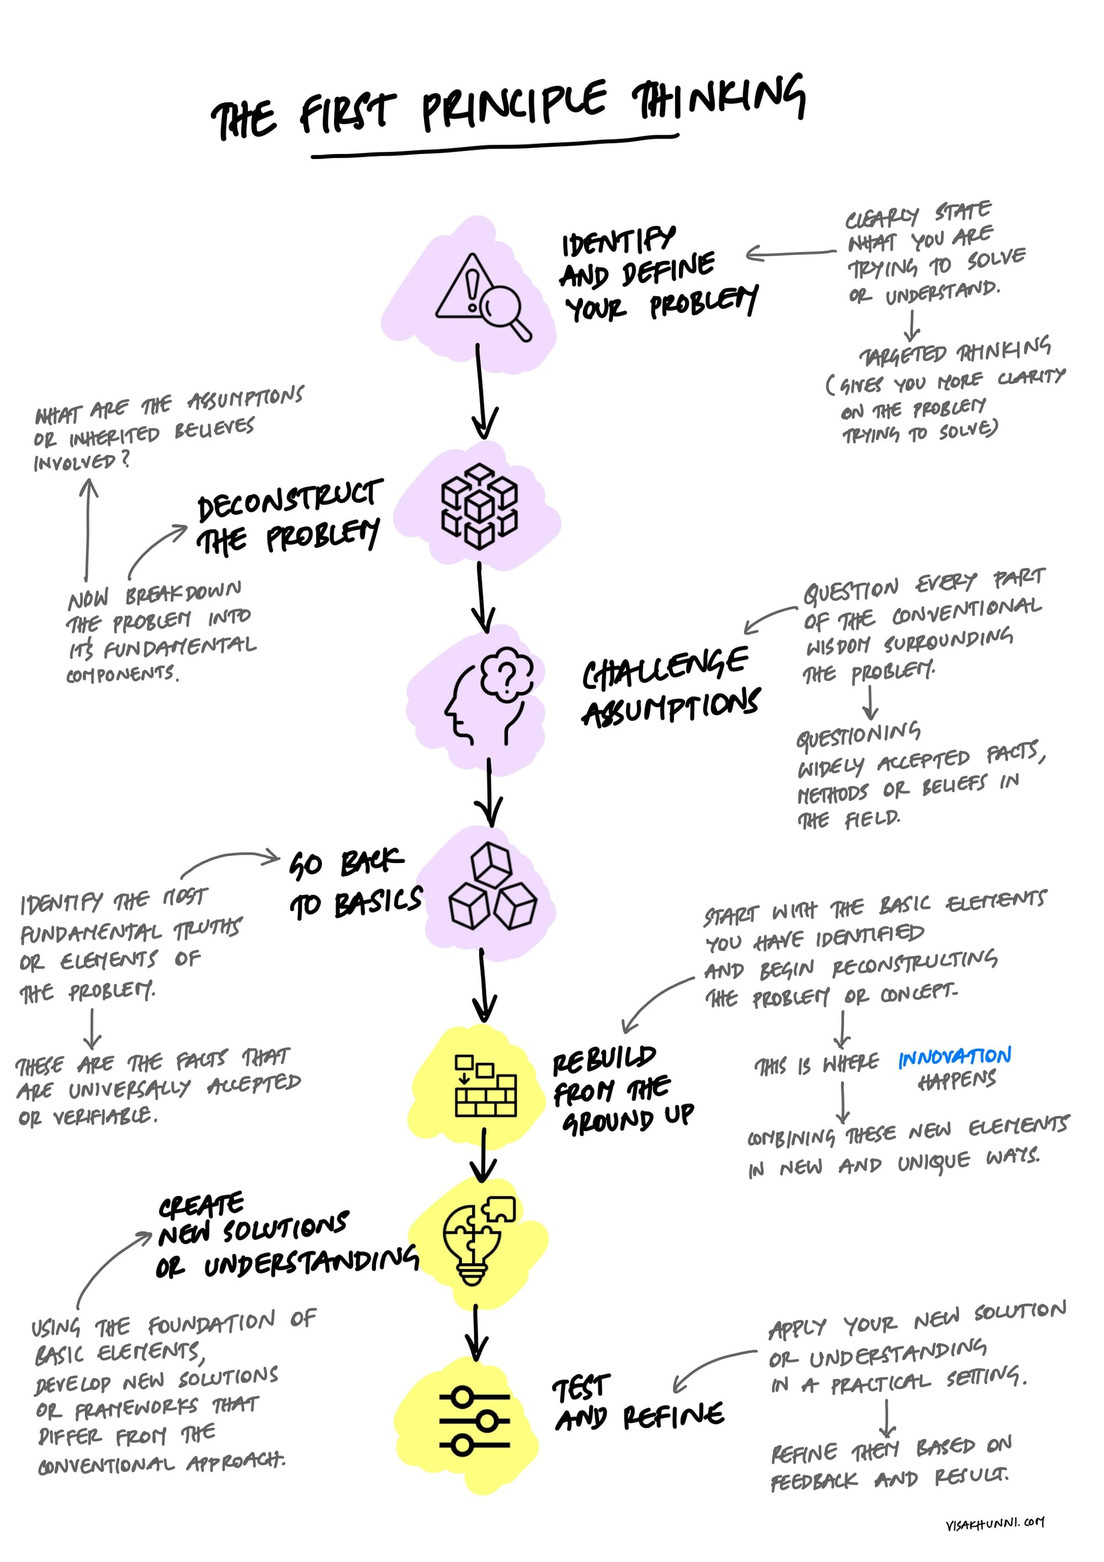 THE FIRST PRINCIPLE THINKING
IDENTIFY
AND DEFINE
YOUR PROBLEM
CLEARLY STATE
WHAT YOU ARE
TRYING TO SOLVE
OR UNDERSTAND.
TARGETED THINKING
(GIVES YOU MORE CLARITY
ON THE PROBLEM
TRYING TO SOLVE)
WHAT ARE THE ASSUMPTIONS
OR INHERITED BELIEVES
INVOLVED?
DECONSTRUCT
THE PROBLEM
NOW BREAKDOWN
THE PROBLEM INTO
IT'S FUNDAMENTAL
COMPONENTS.
CHALLENGE
ASSUMPTIONS
QUESTION EVERY PART
OF THE CONVENTIONAL
WISDOM SURROUNDING
THE PROBLEM.
QUESTIONING
WIDELY ACCEPTED FACTS,
METHODS OR BELIEFS IN
THE FIELD.
GO BACK
TO BASICS
IDENTIFY THE MOST
FUNDAMENTAL TRUTHS
OR ELEMENTS OF
THE PROBLEM.
THESE ARE THE FACTS THAT
ARE UNIVERSALLY ACCEPTED
OR VERIFIABLE.
START WITH THE BASIC ELEMENTS
YOU HAVE IDENTIFIED
AND BEGIN RECONSTRUCTING
THE PROBLEM OR CONCEPT.
REBUILD
FROM THE
GROUND UP
THIS IS WHERE INNOVATION
HAPPENS
COMBINING THESE NEW ELEMENTS
IN NEW AND UNIQUE WAYS.
CREATE
NEW SOLUTIONS
OR UNDERSTANDING
USING THE FOUNDATION OF
BASIC ELEMENTS,
DEVELOP NEW SOLUTIONS
OR FRAMEWORKS THAT
DIFFER FROM THE
CONVENTIONAL APPROACH.
TEST
AND REFINE
APPLY YOUR NEW SOLUTION
OR UNDERSTANDING
IN A PRACTICAL SETTING.
REFINE THEM BASED ON
FEEDBACK AND RESULT.
VISAKHUNNI.COM